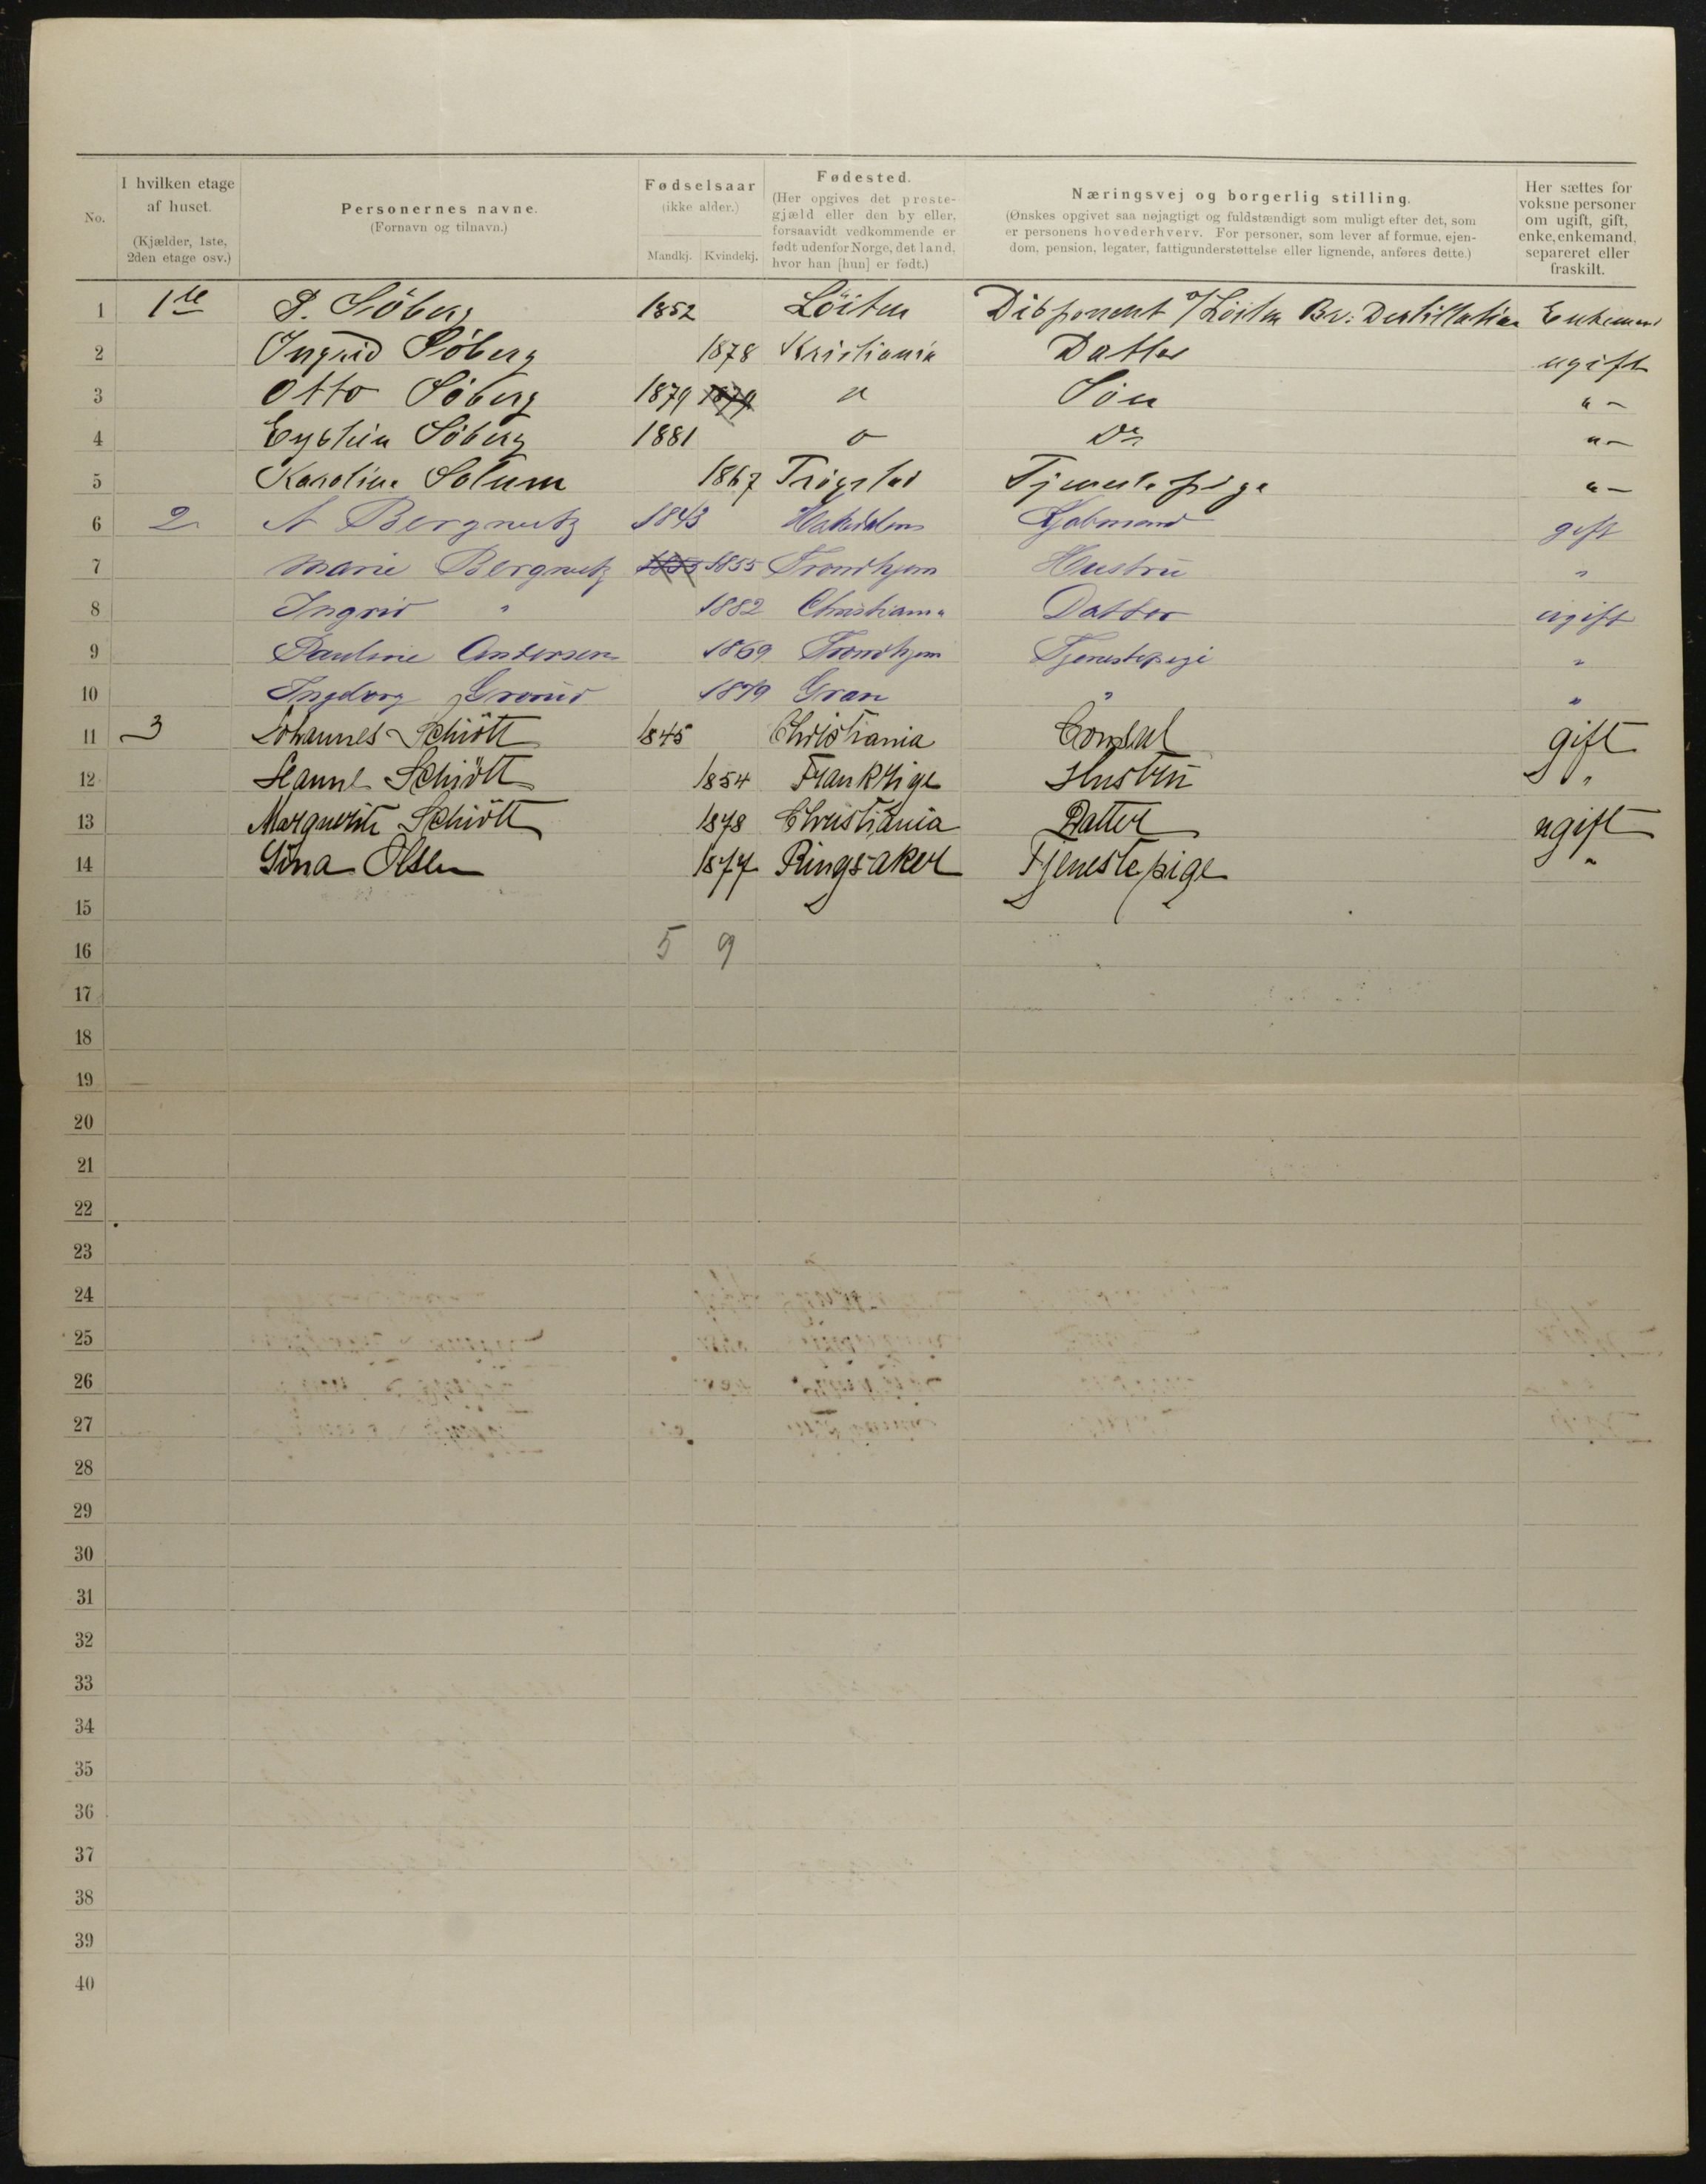 No.
I hvilken etage af huset. (Kjælder, 1ste, 2den etage osv.)
Personernes navne. (Fornavn og tilnavn.)
Fødselsaar (ikke alder.) Mandkj. Kvindekj.
Fødested. (Her opgives det prestegjæld eller den by eller, forsaavidt vedkommende er født udenfor Norge, det land, hvor han [hun] er født.)
Næringsvej og borgerlig stilling. (Ønskes opgivet saa nøjagtigt og fuldstændigt som muligt efter det, som er personens hovederhverv. For personer, som lever af formue, ejendom, pension, legater, fattigunderstøttelse eller lignende, anføres dette.)
Her sættes for voksne personer om ugift, gift, enke, enkemand, separeret eller fraskilt.
1 1ste Söberg 1852 Löiten Disponent Löiten Br: Destillation Enkemand
2 Ingrid Söberg 1878 Kristiania Datter ugift
3 Otto Söberg 1879 1879 " Sön " -
4 Söberg 1881 Do " -
5 Karoline Solum 1867 Trögstad Tjenestepige " -
6 2 A Bergnutz 1843 gift
7 Marie Bergnutz 1855 1855 Trondhjem Hustru "
8 Ingrid " 1882 Christiania Datter ugift
9 Pauline Andersen 1869 Trondhjem Tjenestepige "
10 Ingeborg 1879 Gran " "
11 3 Johannes Schiött 1845 Christiania Consul gift
12 Hanne Schiött 1854 Frankrige Hustru "
13 Marguerite Schiött 1878 Christiania Datter ugift
14 Gina Olsen 1877 Ringsaker Tjenestepige "
15
16 5 9
17
18
19
20
21
22
23
24
25
26
27
28
29
30
31
32
33
34
35
36
37
38
39
40